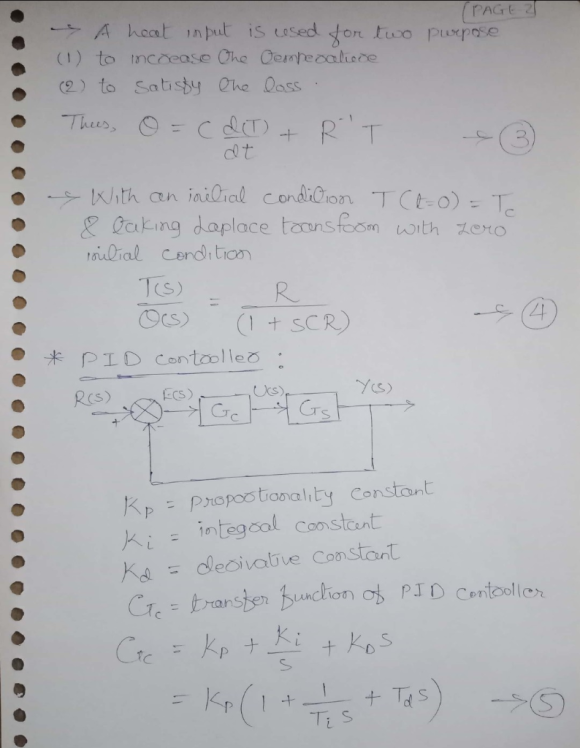 [PAGE-2]
→ A heat input is used for two purpose
(1) to increase the temperature
(2) to satisfy the loss.
Thus, θ = C d(T)/dt + R⁻¹ T → (3)
→ With an initial condition T(t=0) = Tc
& taking Laplace transform with zero
initial condition
T(s)/θ(s) = R/(1 + SCR) → (4)
* PID controller :
R(s) + - E(s) Gc U(s) Gs Y(s)
Kp = proportionality constant
Ki = integral constant
Kd = derivative constant
Gc = transfer function of PID controller
Gc = Kp + Ki/s + KD s
= Kp (1 + 1/(Ti s) + Td s) → (5)